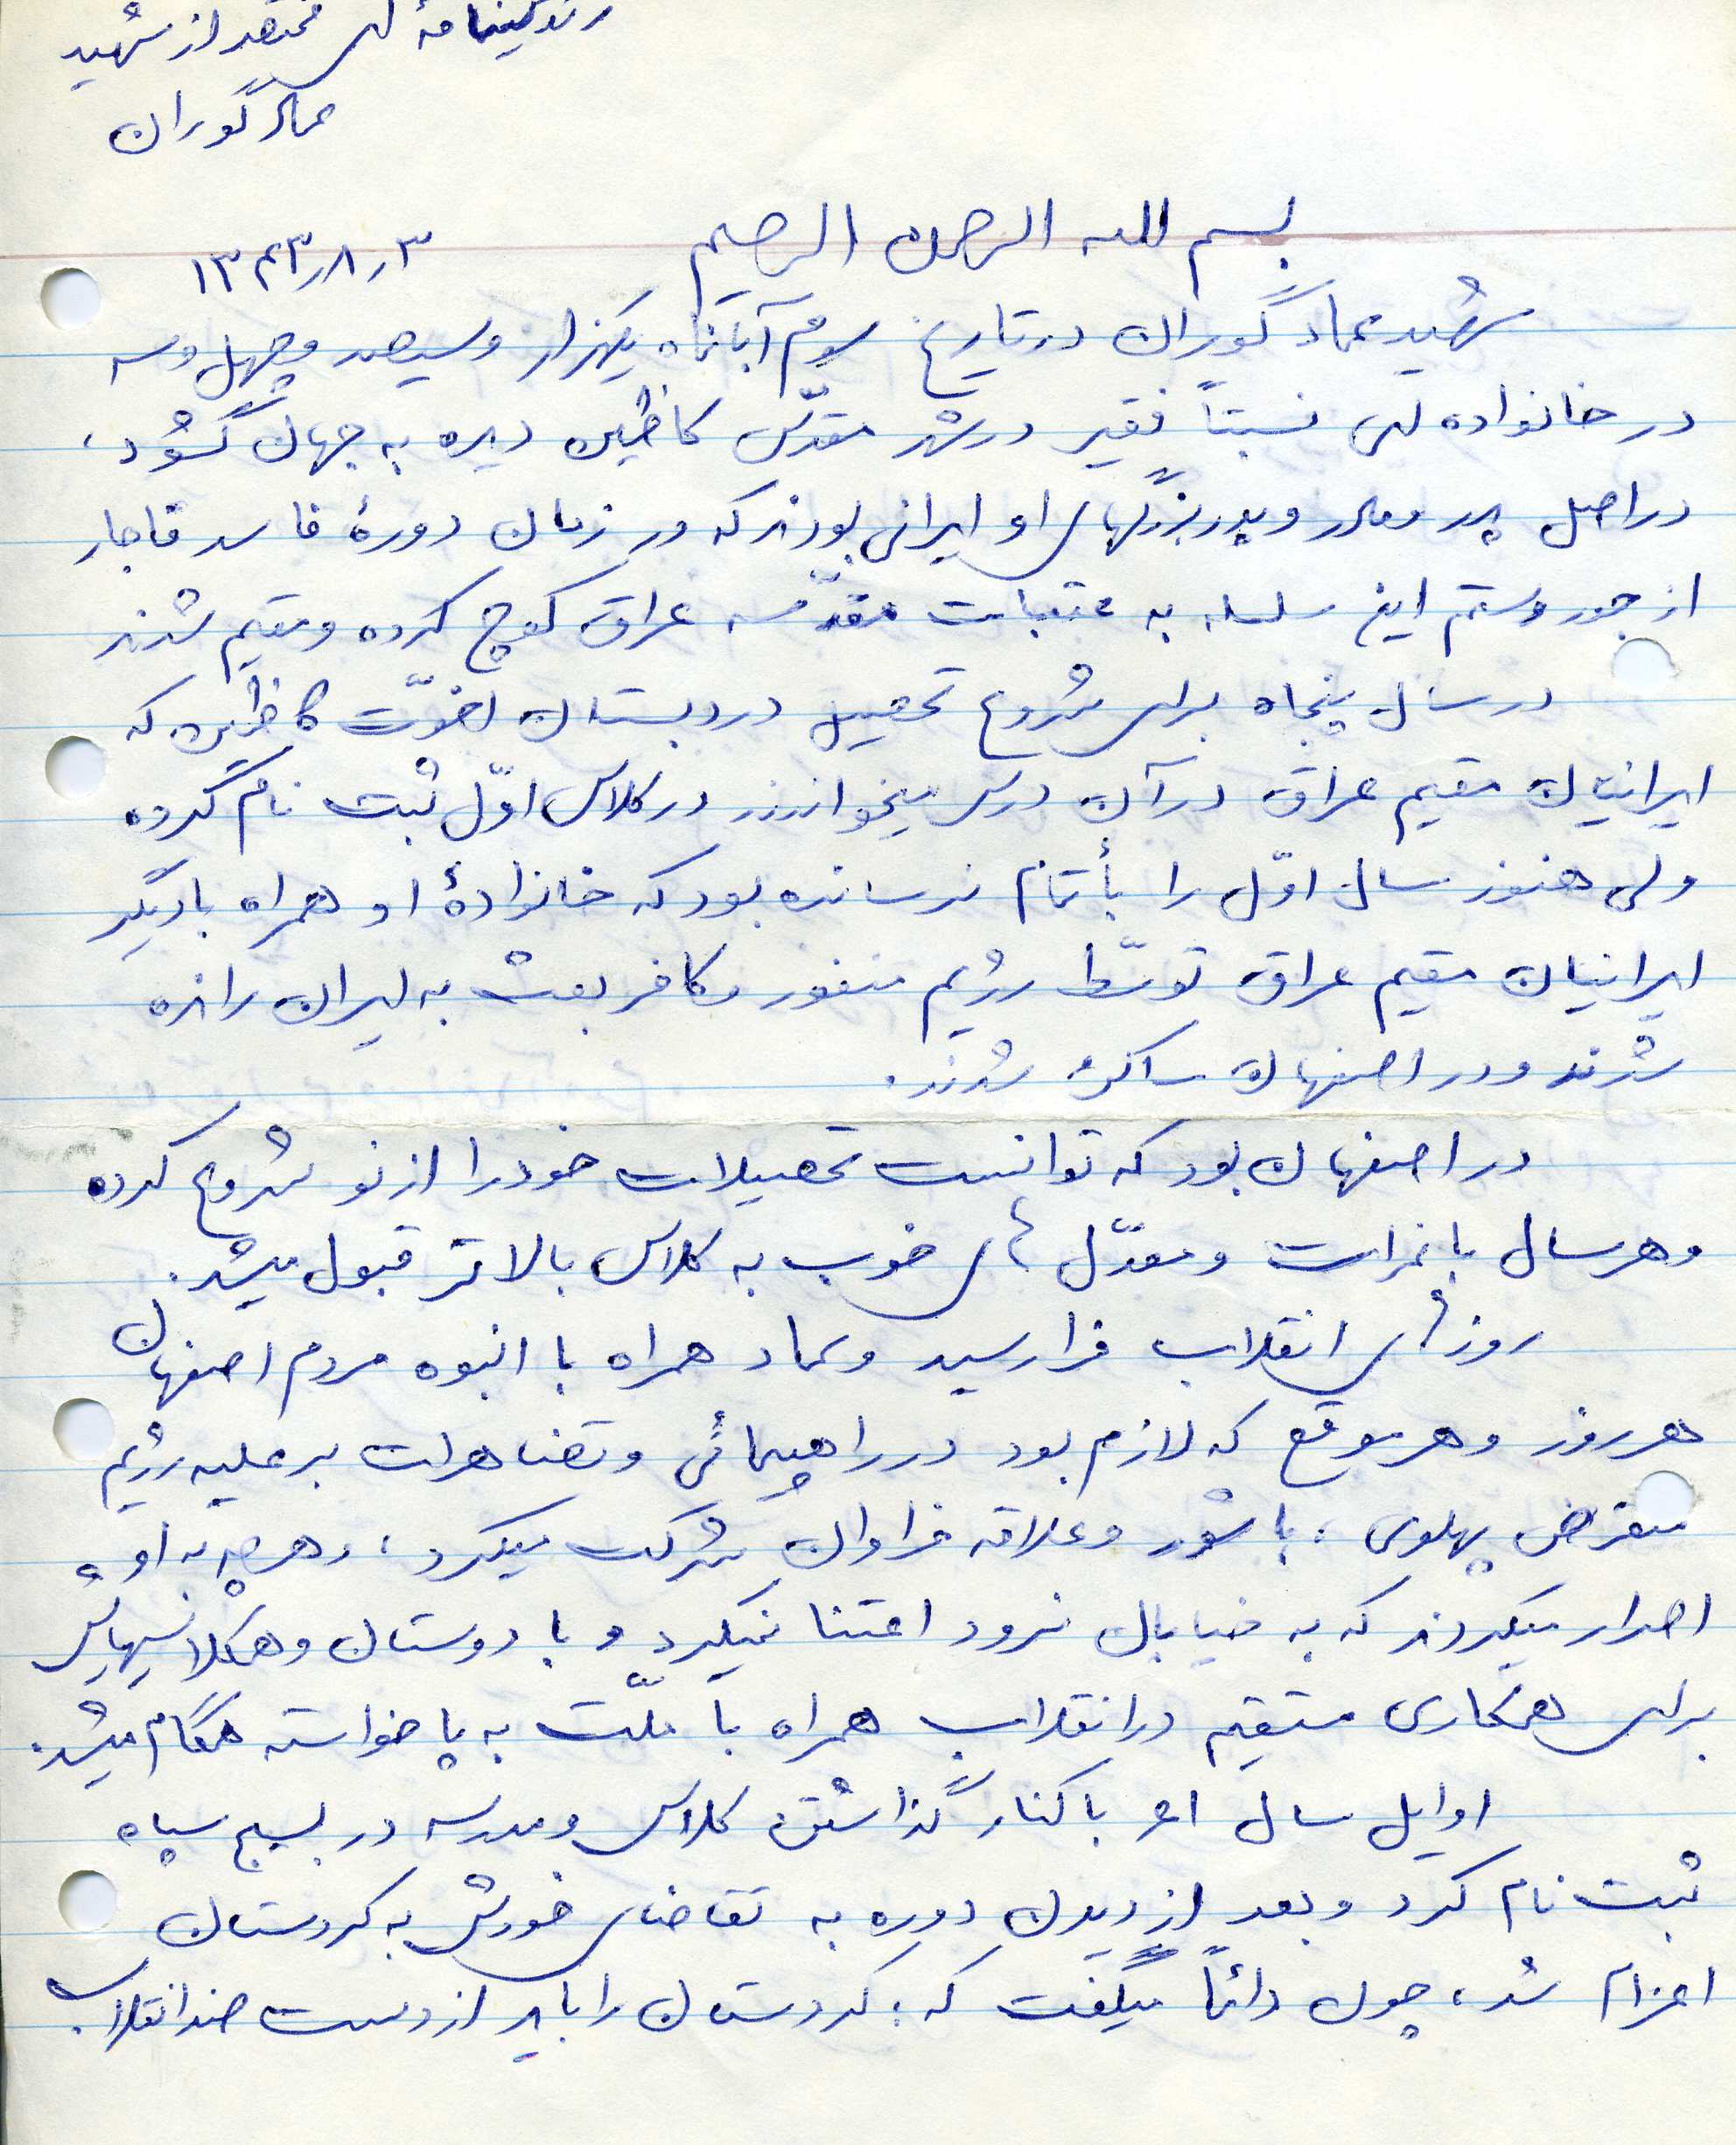 زندگینامه ای مختصر از شهید
عماد گوران
بسم الله الرحمن الرحیم
۱۳۴۳/۸/۳
شهید عماد گوران در تاریخ سوم آبانماه یکهزار و سیصد و چهل و سه
در خانواده ای نسبتاً فقیر در شهر مقدّس کاظمین دیده به جهان گشود،
در اصل پدر و مادر و پدربزرگهای او ایرانی بودند که در زمان دورهٔ فاسد قاجار
از جور و ستم این سلسله به عتبات مقدّسه عراق کوچ کرده و مقیم شدند
در سال پنجاه برای شروع تحصیل در دبستان اخوّت کاظمین که
ایرانیان مقیم عراق در آن درس میخواندند در کلاس اوّل ثبت نام کرده
ولی هنوز سال اوّل را بأتمام نرسانده بود که خانوادهٔ او همراه با دیگر
ایرانیان مقیم عراق توسّط رژیم منفور و کافر بعث به ایران رانده
شدند و در اصفهان ساکن شدند.
در اصفهان بود که توانست تحصیلات خود را از نو شروع کرده
و هر سال با نمرات و معدّل های خوب به کلاس بالاتر قبول میشد.
روزهای انقلاب فرا رسید و عماد همراه با انبوه مردم اصفهان
هر روز و هر موقع که لازم بود در راهپیمائی و تضاهرات بر علیه رژیم
منقرض پهلوی، با شور و علاقه فراوان شرکت میکرد، و هر چه به او
اصرار میکردند که به خیابان نرود اعتنا نمیکرد و با دوستان و همکلاسیهایش
برای همکاری مستقیم در انقلاب همراه با ملّت به پا خواسته همگام میشد.
اوایل سال ۶۱ با کنار گذاشتن کلاس و مدرسه در بسیج سپاه
ثبت نام کرد و بعد از دیدن دوره به تقاضای خودش به کردستان
اعزام شد، چون دائماً میگفت که: کردستان را باید از دست ضد انقلاب